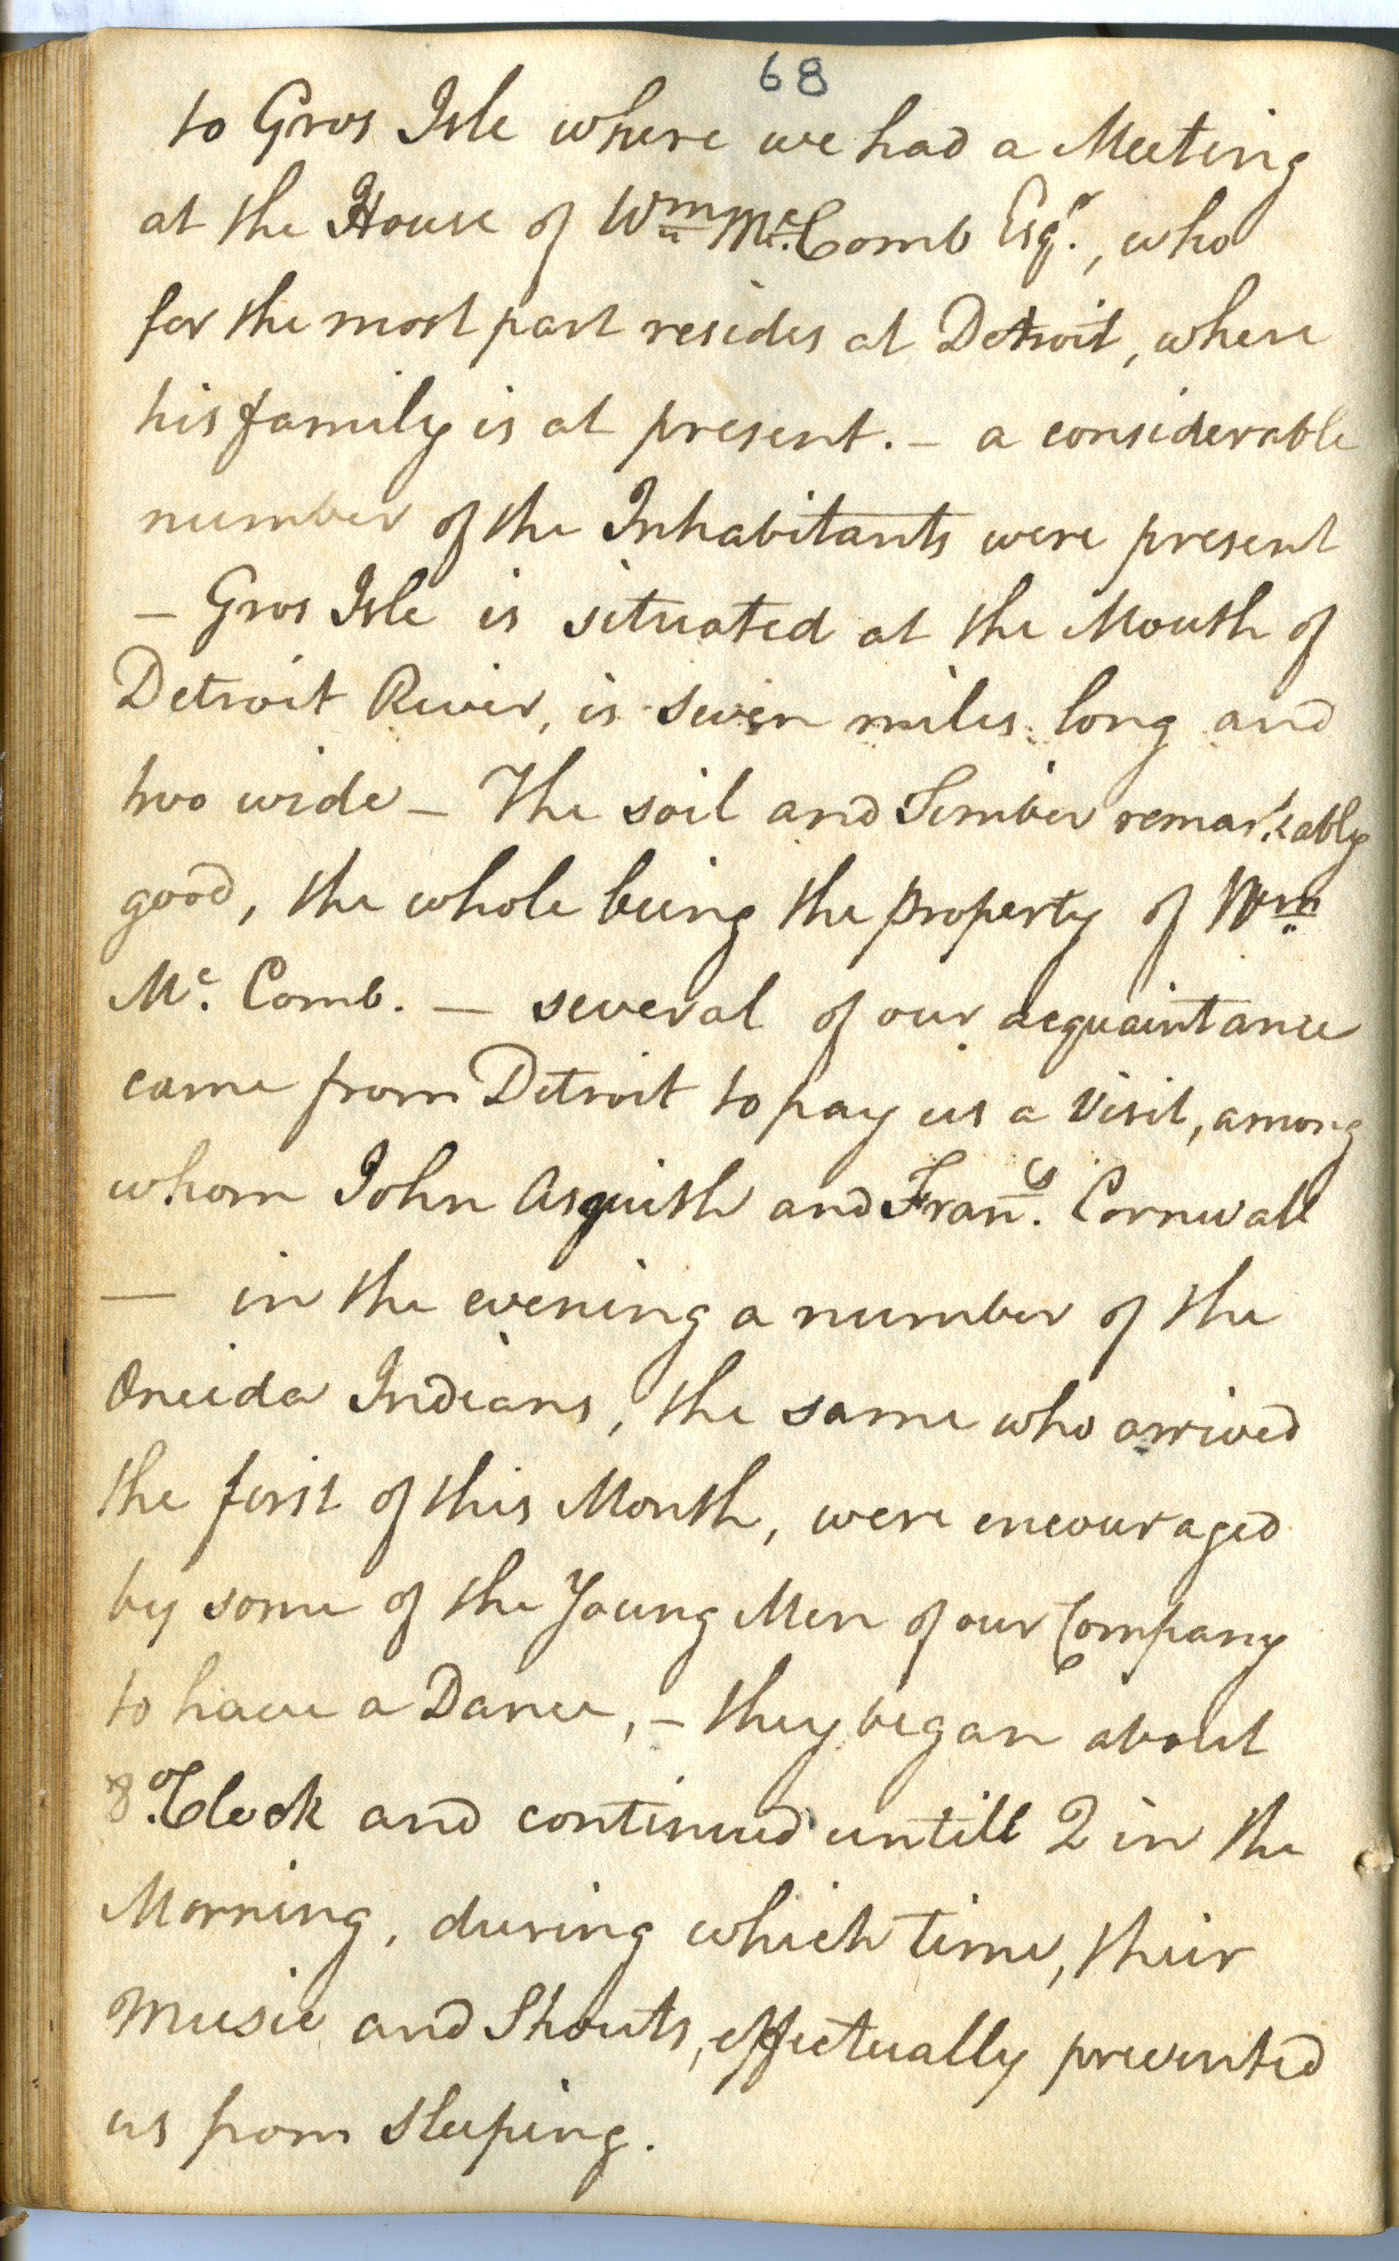 68
to Gros Isle where we had a Meeting
at the House of Wm McComb Esqr., who
for the most part resides at Detroit, where
his family is at present. – a considerable
number of the Inhabitants were present
– Gros Isle is situated at the Mouth of
Detroit River, is seven miles long and
two wide – The soil and Timber remarkably
good, the whole being the property of Wm
Mc. Comb. – several of our acquaintance
came from Detroit to pay us a Visit, among
whom John Asquith and Frans. Cornwall
— in the evening a number of the
Oneida Indians, the same who arrived
the first of this Month, were encouraged
by some of the Young Men of our Company
to have a Dance, – they began about
8 o'Clock and continued untill 2 in the
Morning, during which time, their
Music and Shouts, effectually prevented
us from sleeping.